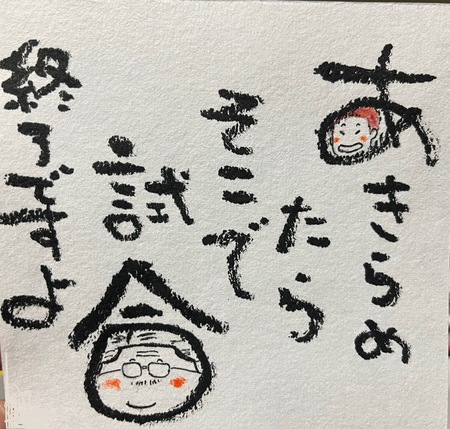 あきらめ
たら
そこで
試合
終了ですよ